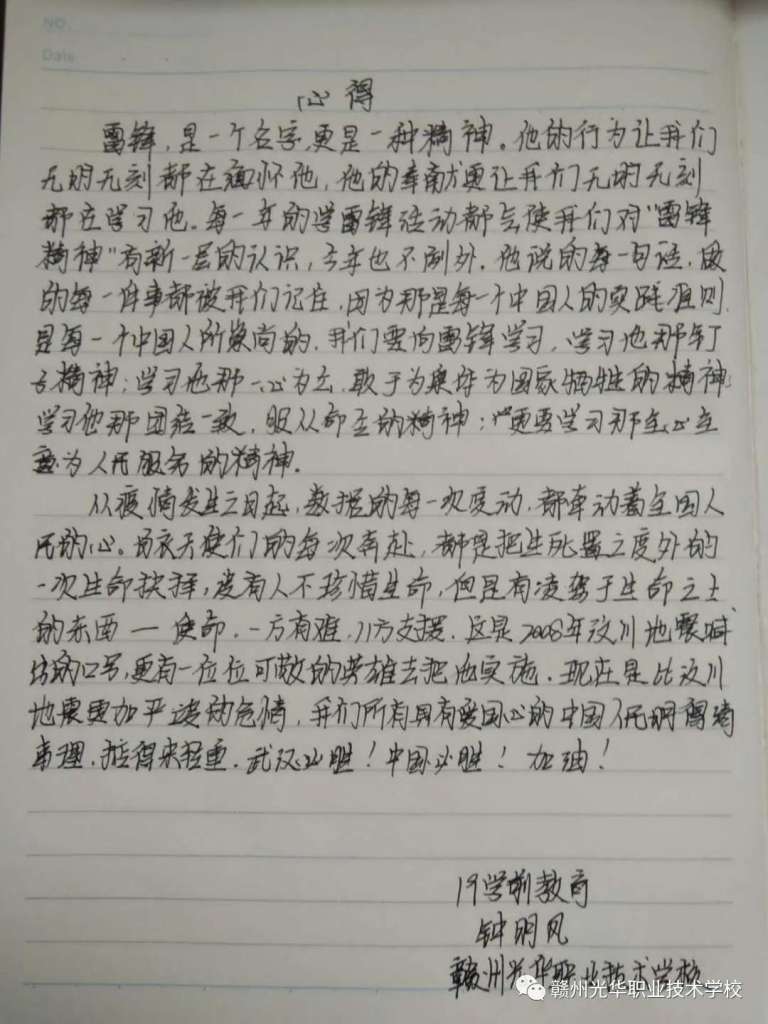 NO.
Date
心得
雷锋,是一个名字,更是一种精神。他的行为让我们
无时无刻都在缅怀他,他的奉献更让我们无时无刻
都在学习他。每一年的学雷锋活动都会使我们对"雷锋
精神"有新一层的认识,今年也不例外。他说的每一句话,做
的每一件事都被我们记住,因为那是每一个中国人的实践准则,
是每一个中国人所崇尚的,我们要向雷锋学习,学习他那钉
子精神;学习他那一心为公,敢于为集体为国家牺牲的精神;
学习他那团结一致,服从命令的精神;更要学习那全心全
意为人民服务的精神。
从疫情发生之日起,数据的每一次变动,都牵动着全国人
民的心。白衣天使们的每次奔赴,都是把生死置之度外的
一次生命抉择,没有人不珍惜生命,但是有凌驾于生命之上
的东西一使命,一方有难,八方支援,这是2008年汶川地震喊
的口号,更有一位位可敬的英雄去把他实施。现在是比汶川
地震更加严峻的危情,我们所有具有爱国心的中国人民明得清
事理,拈得来轻重,武汉必胜!中国必胜!加油!
19学前教育
钟明风
赣州光华职业技术学校
赣州光华职业技术学校